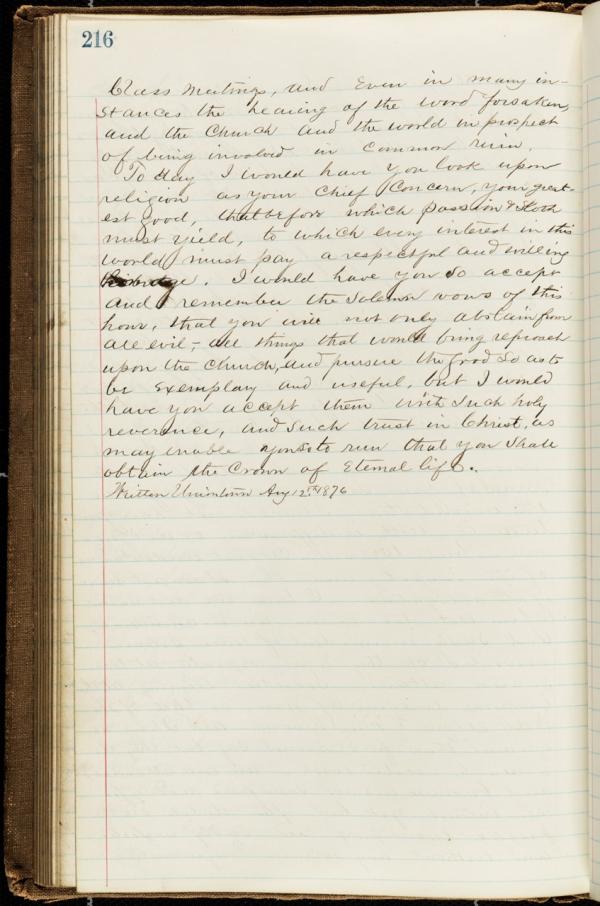 216
Class meetings, and Even in many in-
stances the hearing of the word forsaken,
and the Church and the world in prospect
of being involved in common ruin.
To day I would have you look upon
religion as your Chief Concern, your great-
est good, that before which passion & sloth
must yield, to which every interest in this
world must pay a respectful and willing
I would have you so accept
and remember the solemn vows of this
hour, that you will not only abstain from
all evil, - all things that would bring reproach
upon the Church, and pursue the good so as to
be Exemplary and useful, but I would
have you accept them with such holy
reverence, and such trust in Christ, as
may enable you so to run that you shall
obtain the Crown of Eternal life.
Written Uniontown Aug 12th 1876